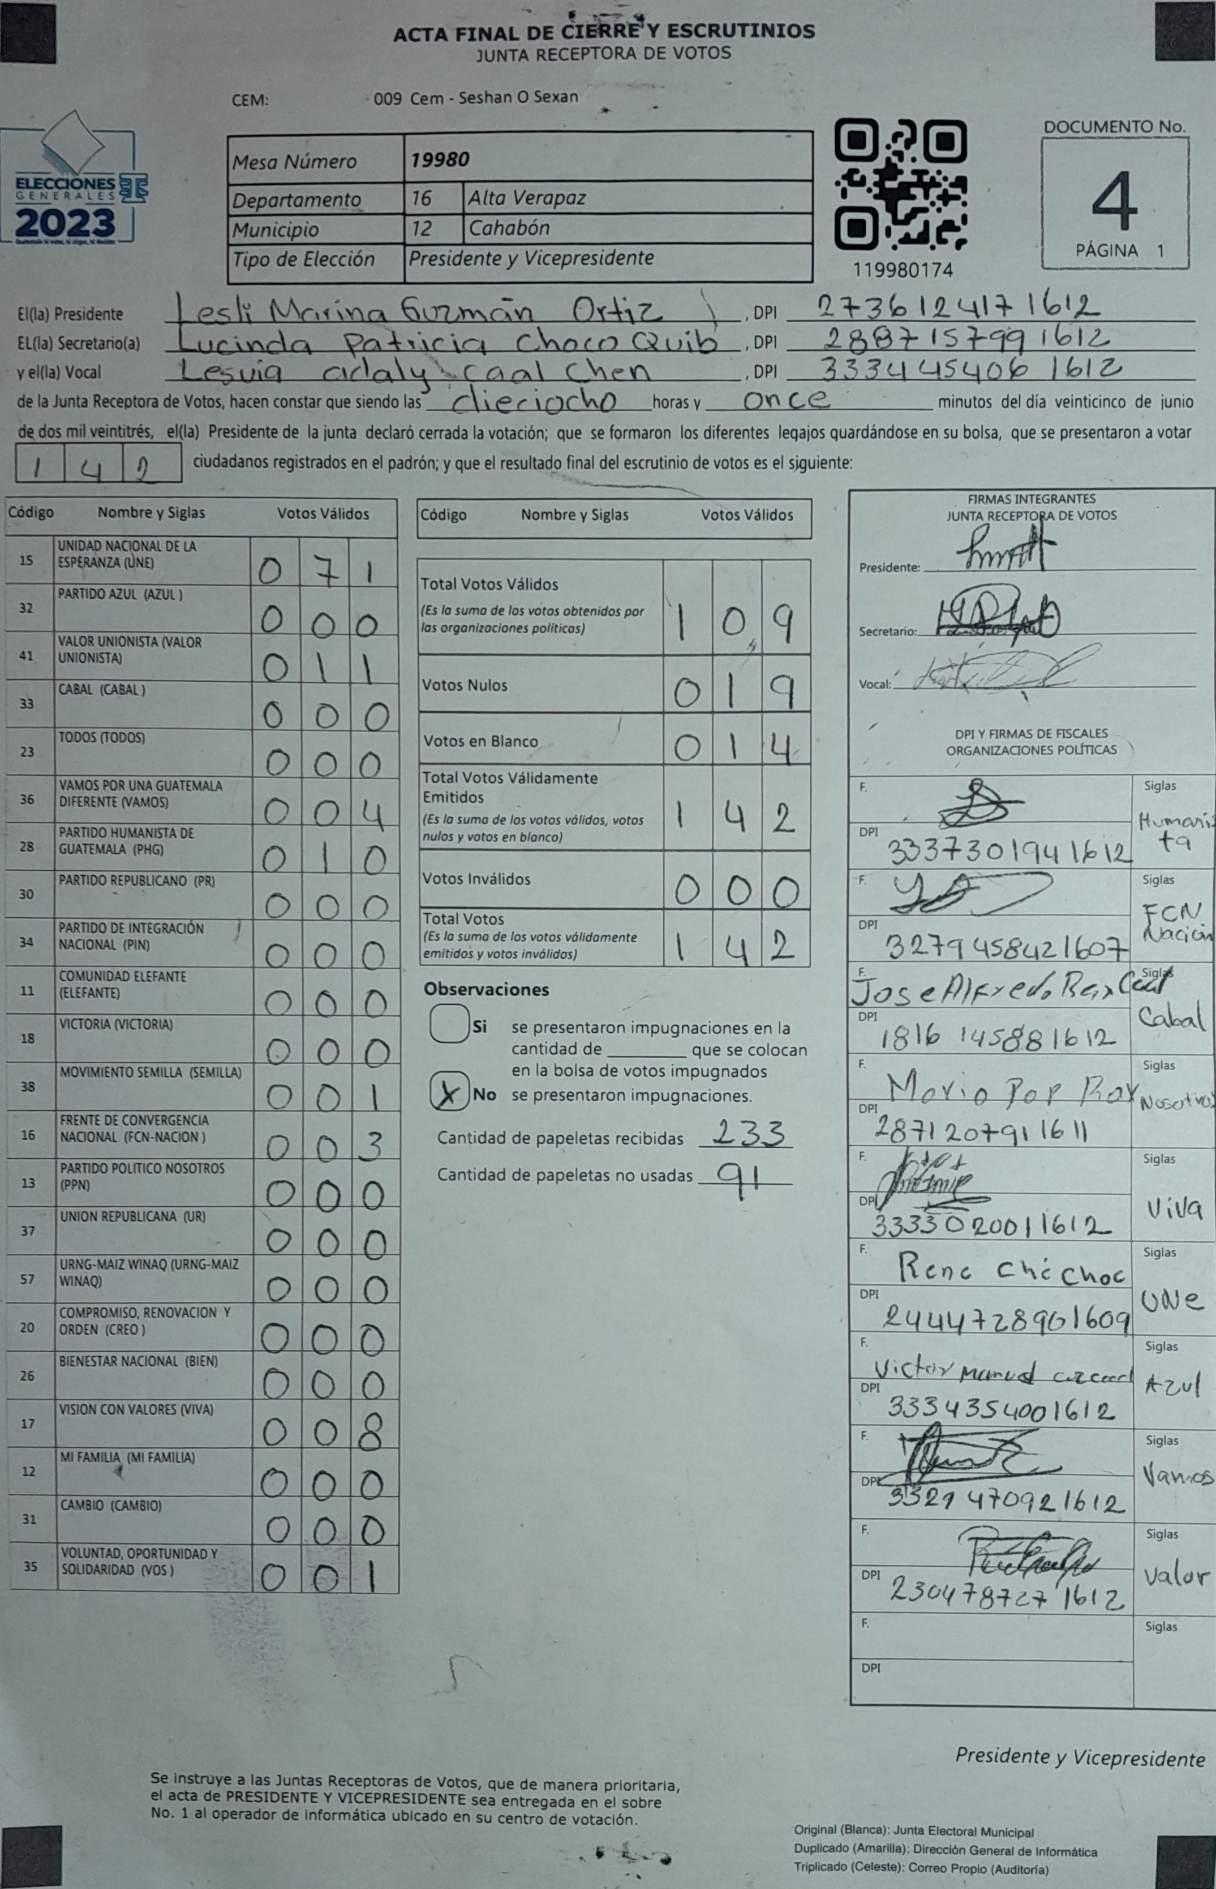 ACTA FINAL DE CIERRE Y ESCRUTINIOS
JUNTA RECEPTORA DE VOTOS
CEM: 009 Cem - Seshan O Sexan
ELECCIONES
GENERALES
2023
Mesa Número 19980
Departamento 16 Alta Verapaz
Municipio 12 Cahabón
Tipo de Elección Presidente y Vicepresidente
119980174
DOCUMENTO No.
4
PÁGINA 1
El(la) Presidente Lesli Marina Guzmán Ortiz, DPI 2736124171612
EL(la) Secretario(a) Lucinda Patricia Choco Quib, DPI 2887157991612
y el(la) Vocal Lesvia adaly caal Chen, DPI 3334454061612
de la Junta Receptora de Votos, hacen constar que siendo las dieciocho horas y once minutos del día veinticinco de junio
de dos mil veintitrés, el(la) Presidente de la junta declaró cerrada la votación; que se formaron los diferentes legajos guardándose en su bolsa, que se presentaron a votar
1 4 2 ciudadanos registrados en el padrón; y que el resultado final del escrutinio de votos es el siguiente:
Código Nombre y Siglas Votos Válidos
15 UNIDAD NACIONAL DE LA ESPERANZA (UNE) 0 7 1
32 PARTIDO AZUL (AZUL) 0 0 0
41 VALOR UNIONISTA (VALOR UNIONISTA) 0 1 1
33 CABAL (CABAL) 0 0 0
23 TODOS (TODOS) 0 0 0
36 VAMOS POR UNA GUATEMALA DIFERENTE (VAMOS) 0 0 4
28 PARTIDO HUMANISTA DE GUATEMALA (PHG) 0 1 0
30 PARTIDO REPUBLICANO (PR) 0 0 0
34 PARTIDO DE INTEGRACIÓN NACIONAL (PIN) 0 0 0
11 COMUNIDAD ELEFANTE (ELEFANTE) 0 0 0
18 VICTORIA (VICTORIA) 0 0 0
38 MOVIMIENTO SEMILLA (SEMILLA) 0 0 1
16 FRENTE DE CONVERGENCIA NACIONAL (FCN-NACION) 0 0 3
13 PARTIDO POLITICO NOSOTROS (PPN) 0 0 0
37 UNION REPUBLICANA (UR) 0 0 0
57 URNG-MAIZ WINAQ (URNG-MAIZ WINAQ) 0 0 0
20 COMPROMISO, RENOVACION Y ORDEN (CREO) 0 0 0
26 BIENESTAR NACIONAL (BIEN) 0 0 0
17 VISION CON VALORES (VIVA) 0 0 8
12 MI FAMILIA (MI FAMILIA) 0 0 0
31 CAMBIO (CAMBIO) 0 0 0
35 VOLUNTAD, OPORTUNIDAD Y SOLIDARIDAD (VOS) 0 0 1
Código Nombre y Siglas Votos Válidos
Total Votos Válidos
(Es la suma de los votos obtenidos por las organizaciones políticas) 1 0 9
Votos Nulos 0 1 9
Votos en Blanco 0 1 4
Total Votos Válidamente Emitidos
(Es la suma de los votos válidos, votos nulos y votos en blanco) 1 4 2
Votos Inválidos 0 0 0
Total Votos
(Es la suma de los votos válidamente emitidos y votos inválidos) 1 4 2
Observaciones
Si se presentaron impugnaciones en la
cantidad de ________ que se colocan
en la bolsa de votos impugnados
X No se presentaron impugnaciones.
Cantidad de papeletas recibidas 233
Cantidad de papeletas no usadas 91
FIRMAS INTEGRANTES
JUNTA RECEPTORA DE VOTOS
Presidente:
Secretario:
Vocal:
DPI Y FIRMAS DE FISCALES
ORGANIZACIONES POLÍTICAS
F. Siglas
DPI 3337301941612 Humanista
F. Siglas
DPI 3279458421607 FCN Nación
F. Jose Alfredo Siglas
DPI 1816145881612 Cabal
F. Mario Pop Siglas
DPI 2871207911611 Nosotros
F. Siglas
DPI 3333020011612 Viva
F. Rene Chè Choc Siglas
DPI 2444728961609 UNe
F. Victor Manuel Siglas
DPI 3334354001612 Azul
F. Siglas
DPI 3329470921612 Vamos
F. Siglas
DPI 2304787271612 Valor
F. Siglas
DPI
Presidente y Vicepresidente
Se instruye a las Juntas Receptoras de Votos, que de manera prioritaria,
el acta de PRESIDENTE Y VICEPRESIDENTE sea entregada en el sobre
No. 1 al operador de informática ubicado en su centro de votación.
Original (Blanca): Junta Electoral Municipal
Duplicado (Amarilla): Dirección General de Informática
Triplicado (Celeste): Correo Propio (Auditoría)